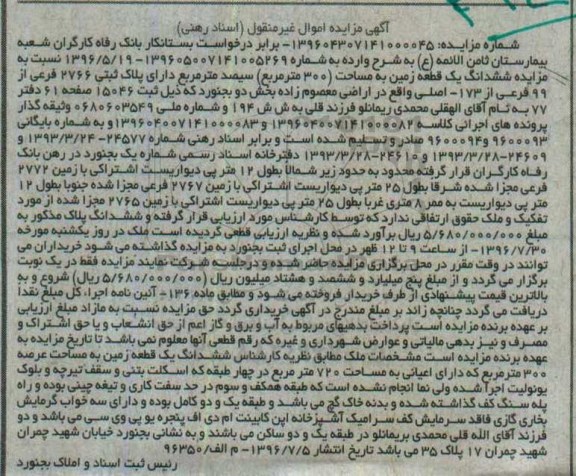 آگهی مزایده اموال غیرمنقول (اسناد رهنی)
شماره مزایـده: ۱۳۹۶۰۴۳۰۷۱۴۱۰۰۰۰۴۵- برابر درخواست بستانکار بانک رفاه کارگران شعبه
بیمارستان ثامن الائمه (ع) به شرح وارده به شماره ۱۳۹۶۰۵۰۰۷۱۴۱۰۰۵۲۶۹- ۱۳۹۶/۵/۱۹ نسبت به
مزایده ششدانگ یک قطعه زمین به مساحت (۳۰۰ مترمربع) سیصد مترمربع دارای پلاک ثبتی ۲۷۶۶ فرعی از
۹۹ فرعی از ۱۷۳- اصلی واقع در اراضی معصوم زاده بخش دو بجنورد که ذیل ثبت ۱۵۰۴۶ صفحه ۶۱ دفتر
۷۷ به نام آقای الهقلی محمدی ریمانلو فرزند قلی به ش ش ۱۹۴ و شماره ملی ۰۶۸۰۶۰۳۵۴۹ وثیقه گذار
پرونده های اجرائی کلاسه ۱۳۹۶۰۴۰۰۷۱۴۱۰۰۰۰۸۲ و ۱۳۹۶۰۴۰۰۷۱۴۱۰۰۰۰۸۳و به شماره بایگانی
۹۶۰۰۰۹۳ و۹۶۰۰۰۹۴ صادر و تسلیم شده است و برابر اسناد رهنی شماره ۲۴۵۷۷- ۱۳۹۳/۳/۲۴ و
۲۴۶۰۹-۱۳۹۳/۳/۲۸ و ۲۴۶۱۰-۱۳۹۳/۳/۲۸ دفترخانه اسناد رسمی شماره یک بجنورد در رهن بانک
رفاه کارگران قرار گرفته محدود به حدود زیر شمالاً بطول ۱۲ متر پی دیواریست اشتراکی با زمین ۲۷۷۲
فرعی مجزا شده شرقا بطول ۲۵ متر پی دیواریست اشتراکی با زمین ۲۷۶۷ فرعی مجزا شده جنوبا بطول ۱۲
متر پی دیواریست به ممر ۸ متری غربا بطول ۲۵ متر پی دیواریست اشتراکی با زمین ۲۷۶۵ مجزا شده از مورد
تفکیک و ملک حقوق ارتفاقی ندارد که توسط کارشناس مورد ارزیابی قرار گرفته و ششدانگ پلاک مذکور به
مبلغ ۵/۶۸۰/۰۰۰/۰۰۰ ریال برآورد شده و نظریه ارزیابی قطعی گردیده است ملک در روز یکشنبه مورخه
۱۳۹۶/۷/۳۰- از ساعت ۹ تا ۱۲ ظهر در محل اجرای ثبت بجنورد به مزایده گذاشته می شود خریداران می
توانند در وقت مقرر در محل برگزاری مزایده حاضر شده و درجلسه شرکت نمایند مزایده فقط در یک نوبت
برگزار می گردد و از مبلغ پنج میلیارد و ششصد و هشتاد میلیون ریال (۵/۶۸۰/۰۰۰/۰۰۰ ریال) شروع و به
بالاترین قیمت پیشنهادی از طرف خریدار فروخته می شود و مطابق ماده ۱۳۶- آئین نامه اجرا، کل مبلغ نقدا
دریافت می گردد چنانچه زائد بر مبلغ مندرج در آگهی خریداری گردد حق مزایده نسبت به مازاد مبلغ ارزیابی
بر عهده برنده مزایده است پرداخت بدهیهای مربوط به آب و برق و گاز اعم از حق انشعاب و یا حق اشتراک و
مصرف و نیز بدهی مالیاتی و عوارض شهرداری و غیره که رقم قطعی آنها معلوم نمی باشد تا تاریخ مزایده به
عهده برنده مزایده است مشخصات ملک مطابق نظریه کارشناس ششدانگ یک قطعه زمین به مساحت عرصه
۳۰۰ مترمربع که دارای اعیانی به مساحت ۷۲۰ متر مربع در چهار طبقه که اسکلت بتنی و سقف تیرچه و بلوک
یونولیت اجرا شده ولی نما انجام نشده است که طبقه همکف و سوم در حد سفت کاری و تیغه چینی بوده و راه
پله سنگ کف گذاشته شده و بدنه خاک گچ می باشد و طبقه یک و دو کامل بوده و دارای سه خواب گرمایش
بخاری گازی فاقد سرمایش کف سرامیک آشپزخانه اپن کابینت ام دی اف پنجره یو پی وی سی می باشد و دو
فرزند آقای الله قلی محمدی بریمانلو در طبقه یک و دو ساکن می باشند و به نشانی بجنورد خیابان شهید چمران
شهید چمران ۱۷ پلاک ۳۵ می باشد تاریخ انتشار ۱۳۹۶/۷/۵- م الف/۹۶۳۵۰
رئیس ثبت اسناد و املاک بجنورد